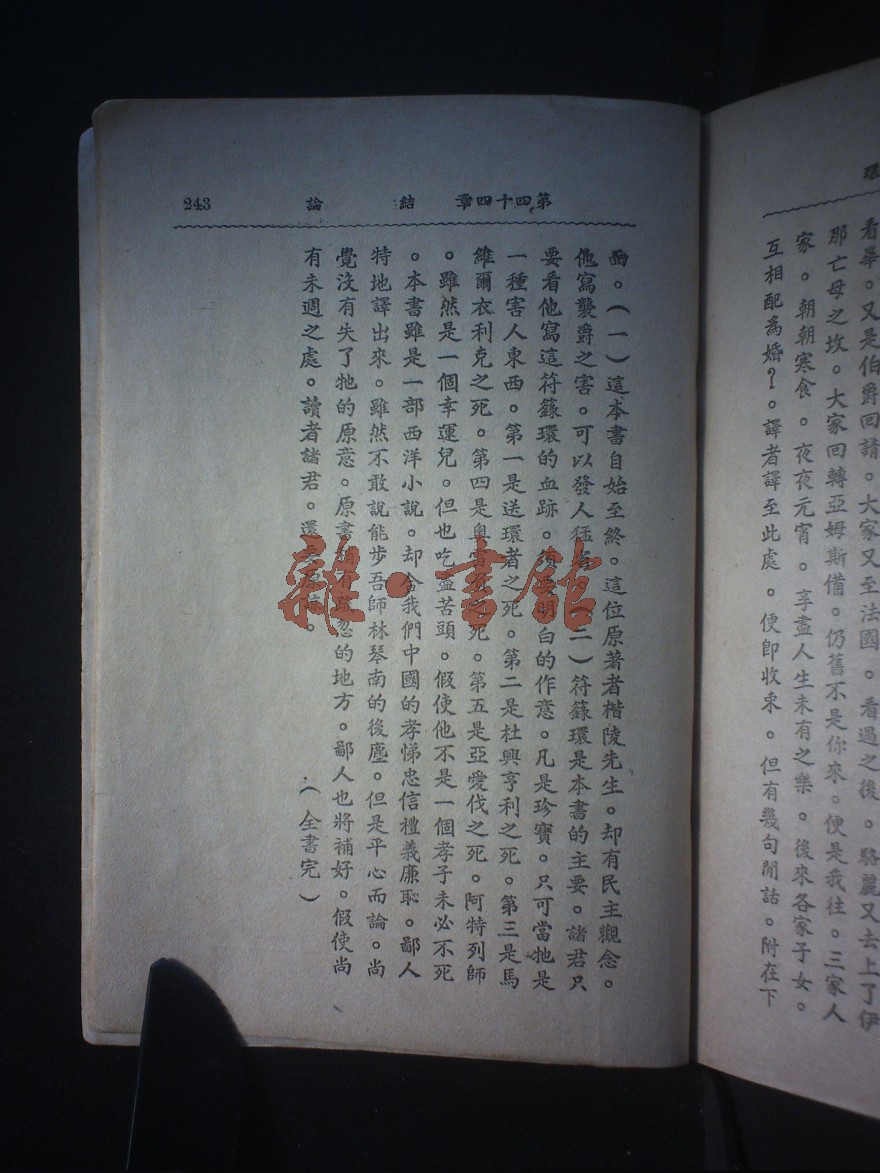 環
看畢。又是伯爵回請。大家又至法國。看過之後。駱麗又去上了伊
那亡母之坟。大家回轉亞姆斯備。仍舊不是你來。便是我往。三家人
家。朝朝寒食。夜夜元宵。享盡人生未有之樂。後來各家子女。
互相配為婚?。譯者譯至此處。便即收束。但有幾句閒話。附在下
第四十四章 結 論 243
面。(一)這本書自始至終。這位原著者楷陵先生。却有民主觀念。
他寫襲爵之害。可以發人猛(二)符籙環是本書的主要。諸君只
要看他寫這符籙環的血跡。明白的作意。凡是珍寶。只可當牠是
一種害人東西。第一是送環者之死。第二是杜興亨利之死。第三是馬
維爾衣利克之死。第四是奧之死。第五是亞愛伐之死。阿特列師
。雖然是一個幸運兒。但也吃盡苦頭。假使他不是一個孝子未必不死
。本書雖是一部西洋小說。却含我們中國的孝悌忠信禮義廉恥。鄙人
特地譯出來。雖然不敢說能步吾師林琴南的後塵。但是平心而論。尚
覺沒有失了牠的原意。原書有疏忽的地方。鄙人也將補好。假使尚
有未週之處。讀者諸君。還。
(全書完)
雜·書舘